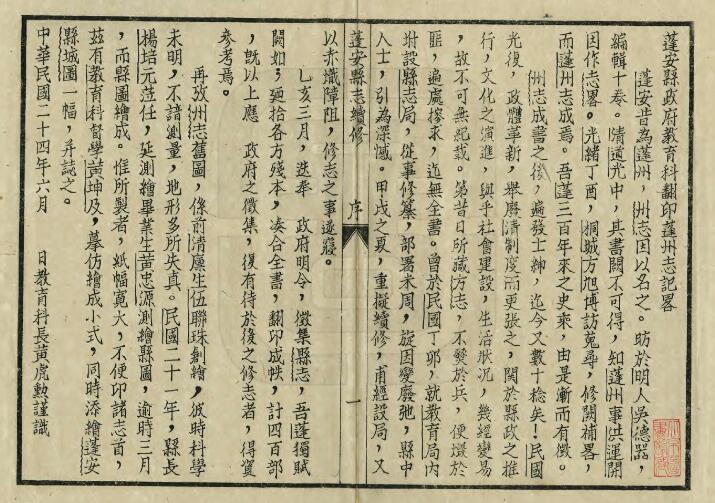 蓬安縣政府教育科翻印蓬州志記畧
蓬安昔為蓬州，州志因以名之。昉於明人吳德器，
編輯十卷。清道光中，其書闕不可得，知蓬州事洪運開
因作志畧。光緒丁酉，桐城方旭博訪蒐尋，修闕補畧，
而蓬州志成焉。吾蓬三百年來之史乘，由是漸而有徵。
州志成書之後，遍發士紳，迄今又數十稔矣！民國
光復，政體革新，舉廢清制度而更張之，関於縣政之推
行，文化之演進，與乎社會建設，生活狀况，幾經變易
，故不可無紀載。第昔日所藏方志，不燬於兵，便燬於
匪，遍處搜求，迄無全書。曾於民國丁卯，就教育局內
坿設縣志局，從事修纂，部署未周，旋因變廢弛，縣中
人士，引為深憾。甲戌之夏，重擬續修，甫經設局，又
蓬安縣志續修
序
一
以赤熾障阻，修志之事遂寢。
乙亥三月，迭奉 政府明令，徵集縣志，吾蓬獨賦
闕如；廼拾各方殘本，凑合全書，翻印成帙，計四百部
，既以上應 政府之徵集，復有待於後之修志者，得資
參考焉。
再攷州志舊圖，係前清廪生伍聯珠創繪，彼時科學
未明，不諳測量，地形多所失真。民國二十一年，縣長
楊培元蒞任，延測繪畢業生黃忠源測繪縣圖，逾時三月
，而縣圖繪成。惟所製者，紙幅寬大，不便印諸志首，
茲有教育科督學黃坤及，摹仿繪成小式，同時添繪蓬安
縣城圖一幅，并誌之。
中華民國二十四年六月 日教育科長黃虎勳謹識